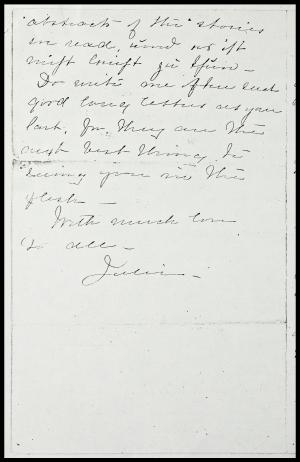 abstracts of the stories
we read, und es ist
nicht leicht zu thun —
Do write me often such
good long letters as your
last, for they are the
next best thing to
seeing you in the
flesh —
With much love
to all —
Julia —